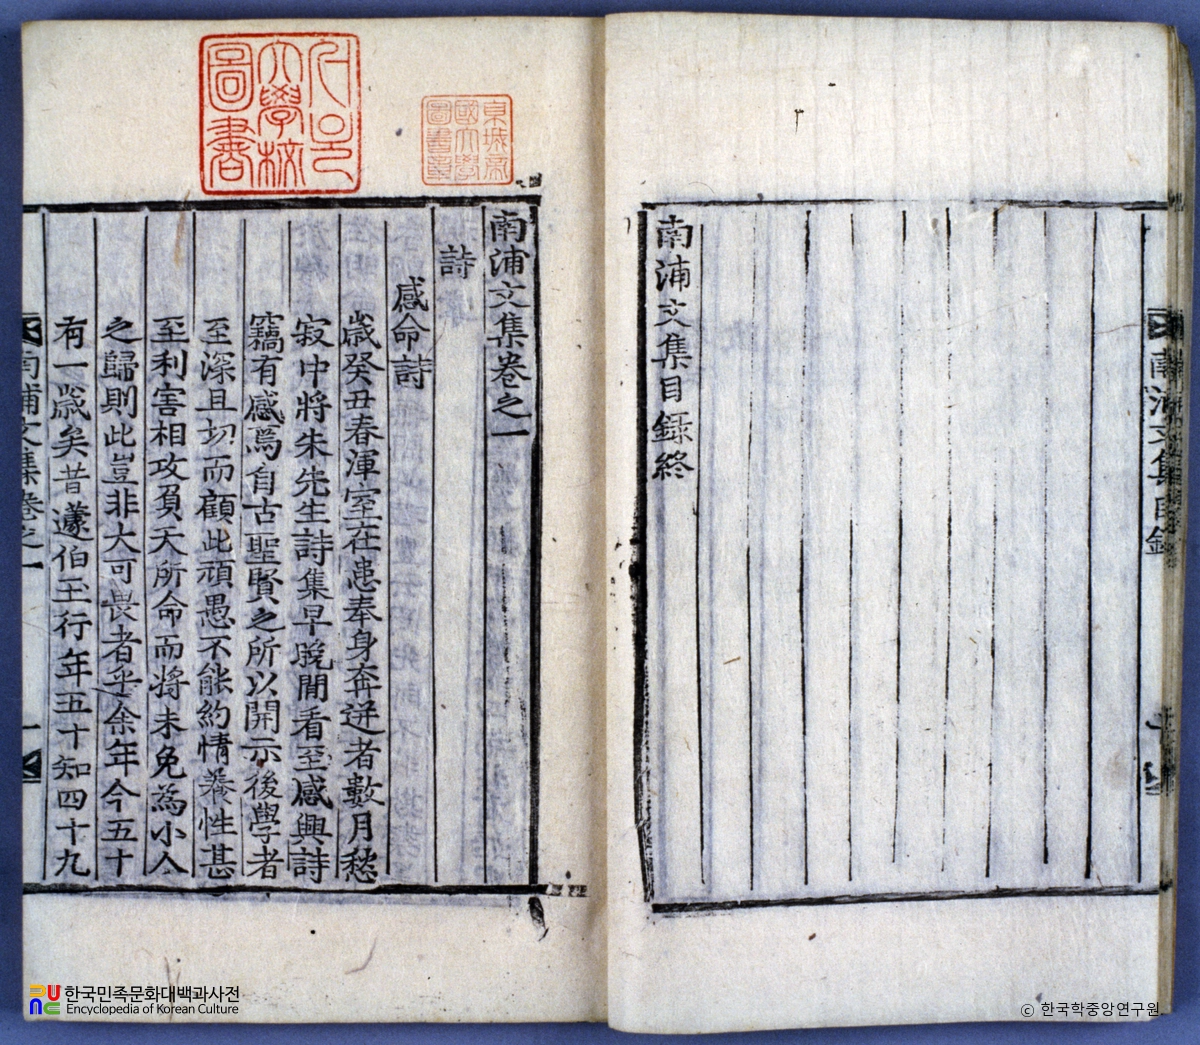 南浦文集目錄
南浦文集目錄終
京城帝
國大學
圖書章
서울
大學校
圖書
南浦文集卷之一
詩
感命詩
歲癸丑春渾室在患奉身奔迸者數月愁
寂中將朱先生詩集早晚閒看至感興詩
竊有感焉自古聖賢之所以開示後學者
至深且切而顧此頑愚不能約情養性甚
至利害相攻負天所命而將未免為小人
之歸則此豈非大可畏者乎余年今五十
有一歲矣昔蘧伯玉行年五十知四十九
南浦文集卷之一 一
한국민족문화대백과사전
Encyclopedia of Korean Culture
© 한국학중앙연구원.